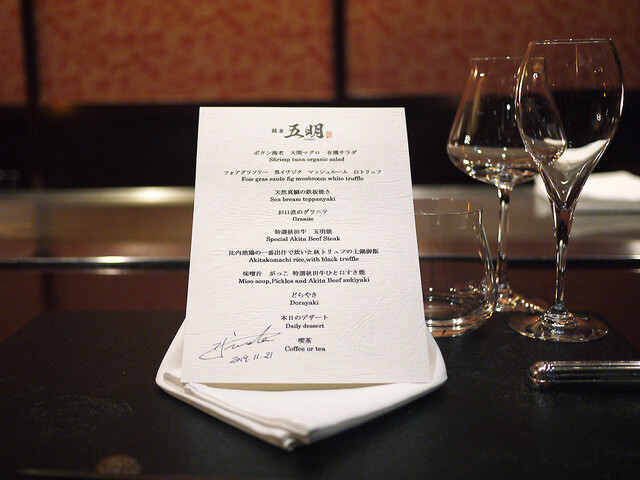 銀座 五明
ボタン海老 大間マグロ 有機サラダ
Shrimp tuna organic salad
フォアグラソテー 黒イチジク マッシュルーム 白トリュフ
Foie gras saute fig mushroom white truffle
天然真鯛の鉄板焼き
Sea bream teppanyaki
お口直のグラニテ
Granite
特選秋田牛 五明焼
Special Akita Beef Steak
比内地鶏の一番出汁で炊いた秋トリュフの土鍋御飯
Akitakomachi rice,with black truffle
味噌汁 がっこ 特選秋田牛ひと口すき焼
Miso soup,Pickles and Akita Beef sukiyaki
どらやき
Dorayaki
本日のデザート
Daily dessert
喫茶
Coffee or tea
2019.11.21